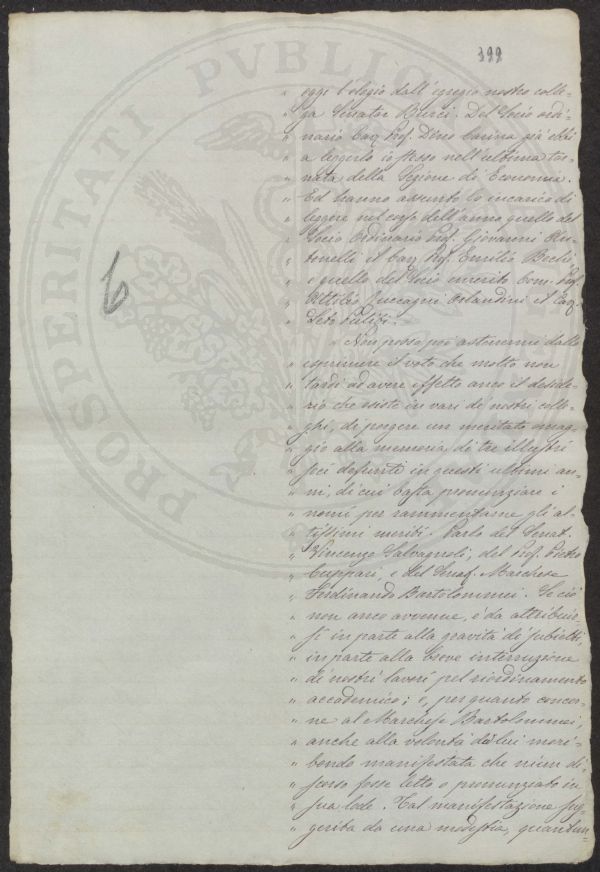 399
PROSPERITATI PVBLICAE
6
" oggi l'elogio dall'egregio nostro colle-
" ga Senator Burci. Del Socio ordi-
" nario Cav. Prof. Dino Carina già ebbi
" a leggerlo io stesso nell'ultima tor-
" nata della Sezione di Economia.
" Ed hanno assunto lo incarico di
" leggere nel corso dell'anno quello del
" Socio Ordinario Prof. Giovanni An-
" tonelli il Cav. Prof. Emilio Bechi,
" e quello del Socio emerito Com. Prof.
" Attilio Zuccagni Orlandini il Cav.
" Leto Puliti.
" Non posso poi astenermi dallo
" esprimere il voto che molto non
" tardi ad avere effetto anco il deside-
" rio che esiste in vari de' nostri colle-
" ghi, di porgere un meritato omag-
" gio alla memoria di tre illustri
" soci defunti in questi ultimi an-
" ni, di cui basta pronunziare i
" nomi per rammentarne gli al-
" tissimi meriti. Parlo del Senat.
" Vincenzo Salvagnoli, del Prof. Pietro
" Cuppari, e del Senat. Marchese
" Ferdinando Bartolommei. Se ciò
" non anco avvenne, è da attribuir-
" si in parte alla gravità de' subietti,
" in parte alla breve interruzione
" de' nostri lavori pel riordinamento
" accademico; e, per quanto concer-
" ne al Marchese Bartolommei,
" anche alla volontà da lui mori-
" bondo manifestata che niun di-
" scorso fosse letto o pronunziato in
" sua lode. Tal manifestazione sug-
" gerita da una modestia, quantun-